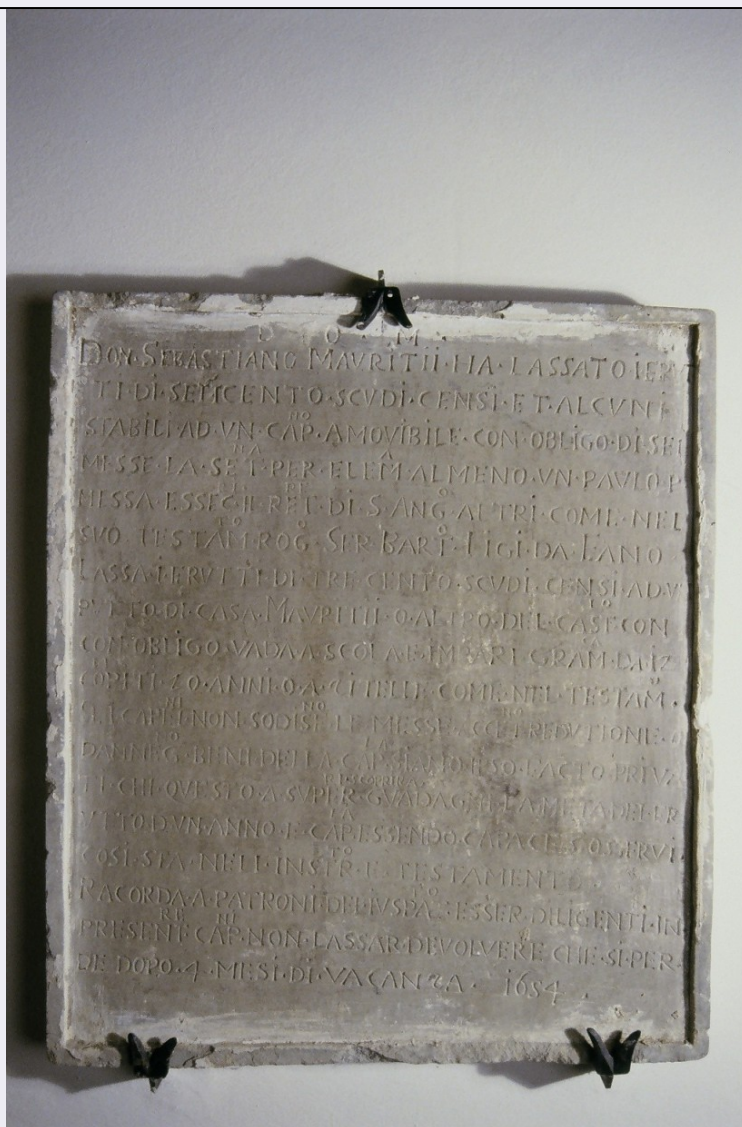 D · O · M ·
DON · SEBASTIANO MAVRITII · HA · LASSATO
DI · SEICENTO · SCVDI · CENSI · E T · ALCVNI
STABILI · AD · VN · CAP^NO · AMOVIBILE · CON · OBLIGO · DI · SEI
MESSE · LA · SET^NA · PER · ELEM^A · ALMENO · VN · PAVLO · P
MESSA · DI · S · ANG^O · ALTRI · COME · NEL
SVO · TESTAM^O · ROG^O · SER · BART^O · LIGI · DA · FANO
LASSA · I · FRVTTI · DI · TRE · CENTO · SCVDI · CENSI · AD · V
PVTTO · DI · CASA · MAVRITII · O · ALTRO · DEL · CAST^LO · CON
CON · OBLIGO · VADA · A · SCOLA · E · IMPARI · GRAM^A · DA · 12
20 · ANNI · O · A · ZITELLE · COME · NEL · TESTAM^O ·
NON · SODISF^NO · LE · MESSE · REDVTIONE ·
BENI · DELLA · CAP^LA · PRIVA
TI · CHI · QVESTO · GVADAGNI · LA · META · DEI · FR
VTTO · D'VN · ANNO · E · CAP^LA · ESSENDO · CAPACE · OSSERVI ·
COSI · STA · NELL · INSTR^TO · E · TESTAMENTO
RACORDA · A · PATRONI · DEL · IVSPA^TO · ESSER · DILIGENTI · IN
PRESENT^RE · CAP^NI · NON · LASSAR · DEVOLVERE · CHE · SI · PER ·
DE · DOPO · 4 · MESI · DI · VACANZA · 1654